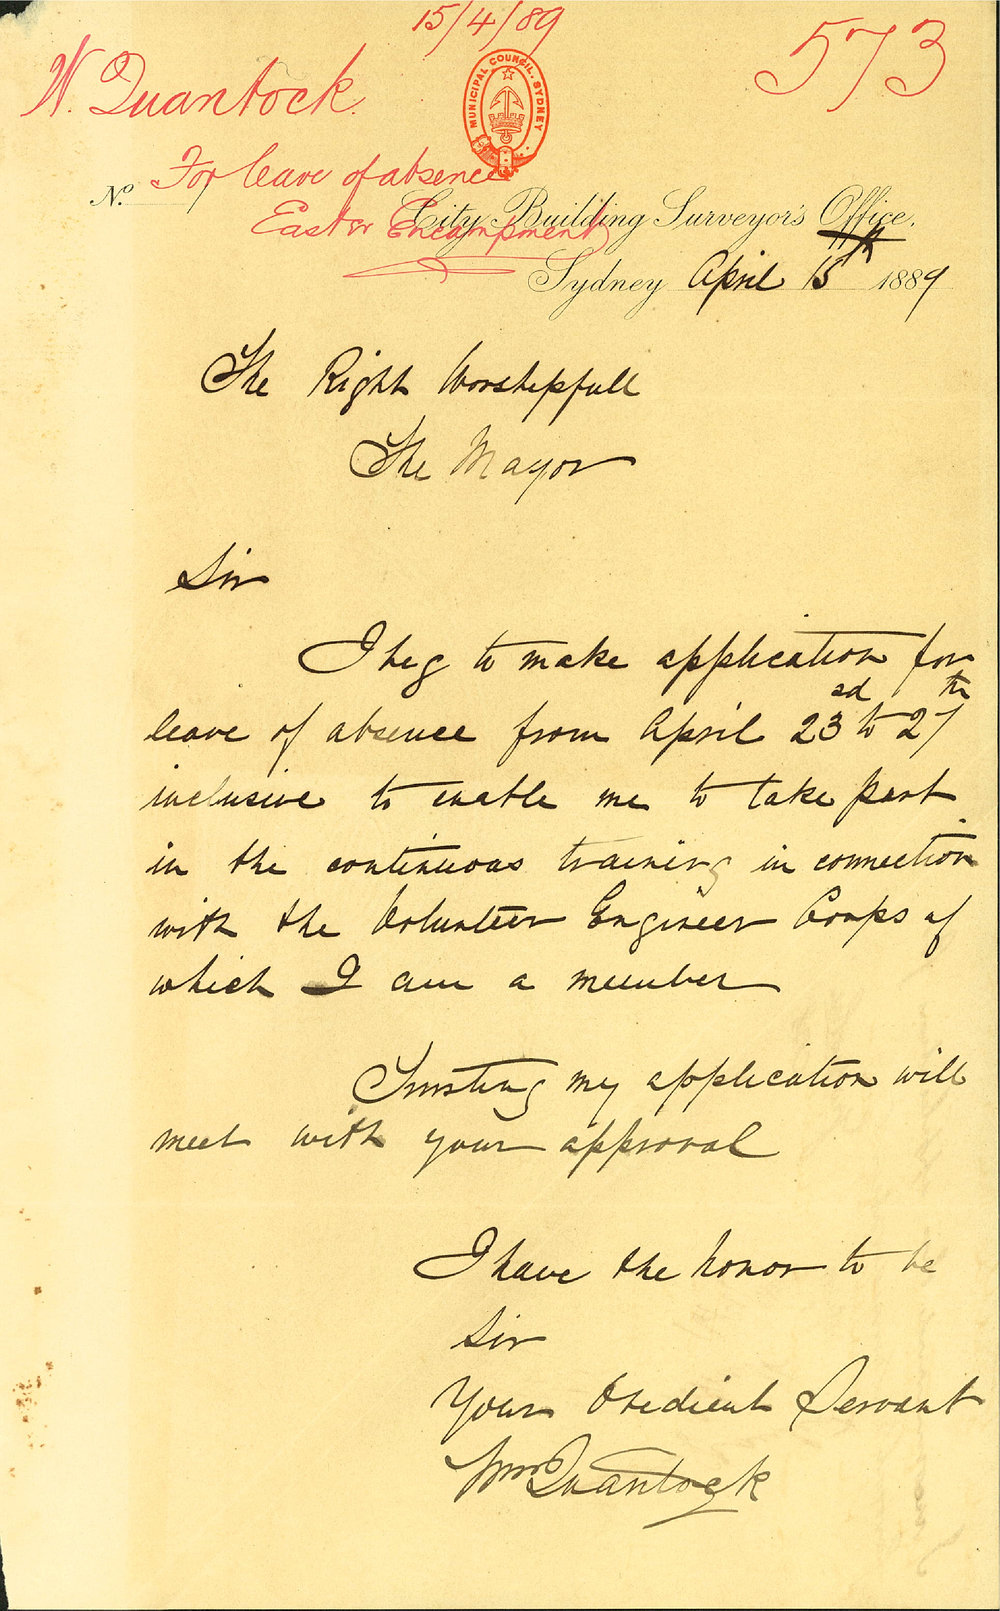 15/4/89
573
W. Quantock.
MUNICIPAL COUNCIL. SYDNEY
For leave of absence
Easter Encampment
No.
City Building Surveyor's Office.
Sydney April 15th 1889
The Right Worshipfull
The Mayor
Sir
I beg to make application for
leave of absence from April 23rd to 27th
inclusive to enable me to take part
in the continuous training in connection
with the Volunteer Engineer Corps of
which I am a member
Trusting my application will
meet with your approval
I have the honor to be
Sir
Your Obedient Servant
Wm Quantock